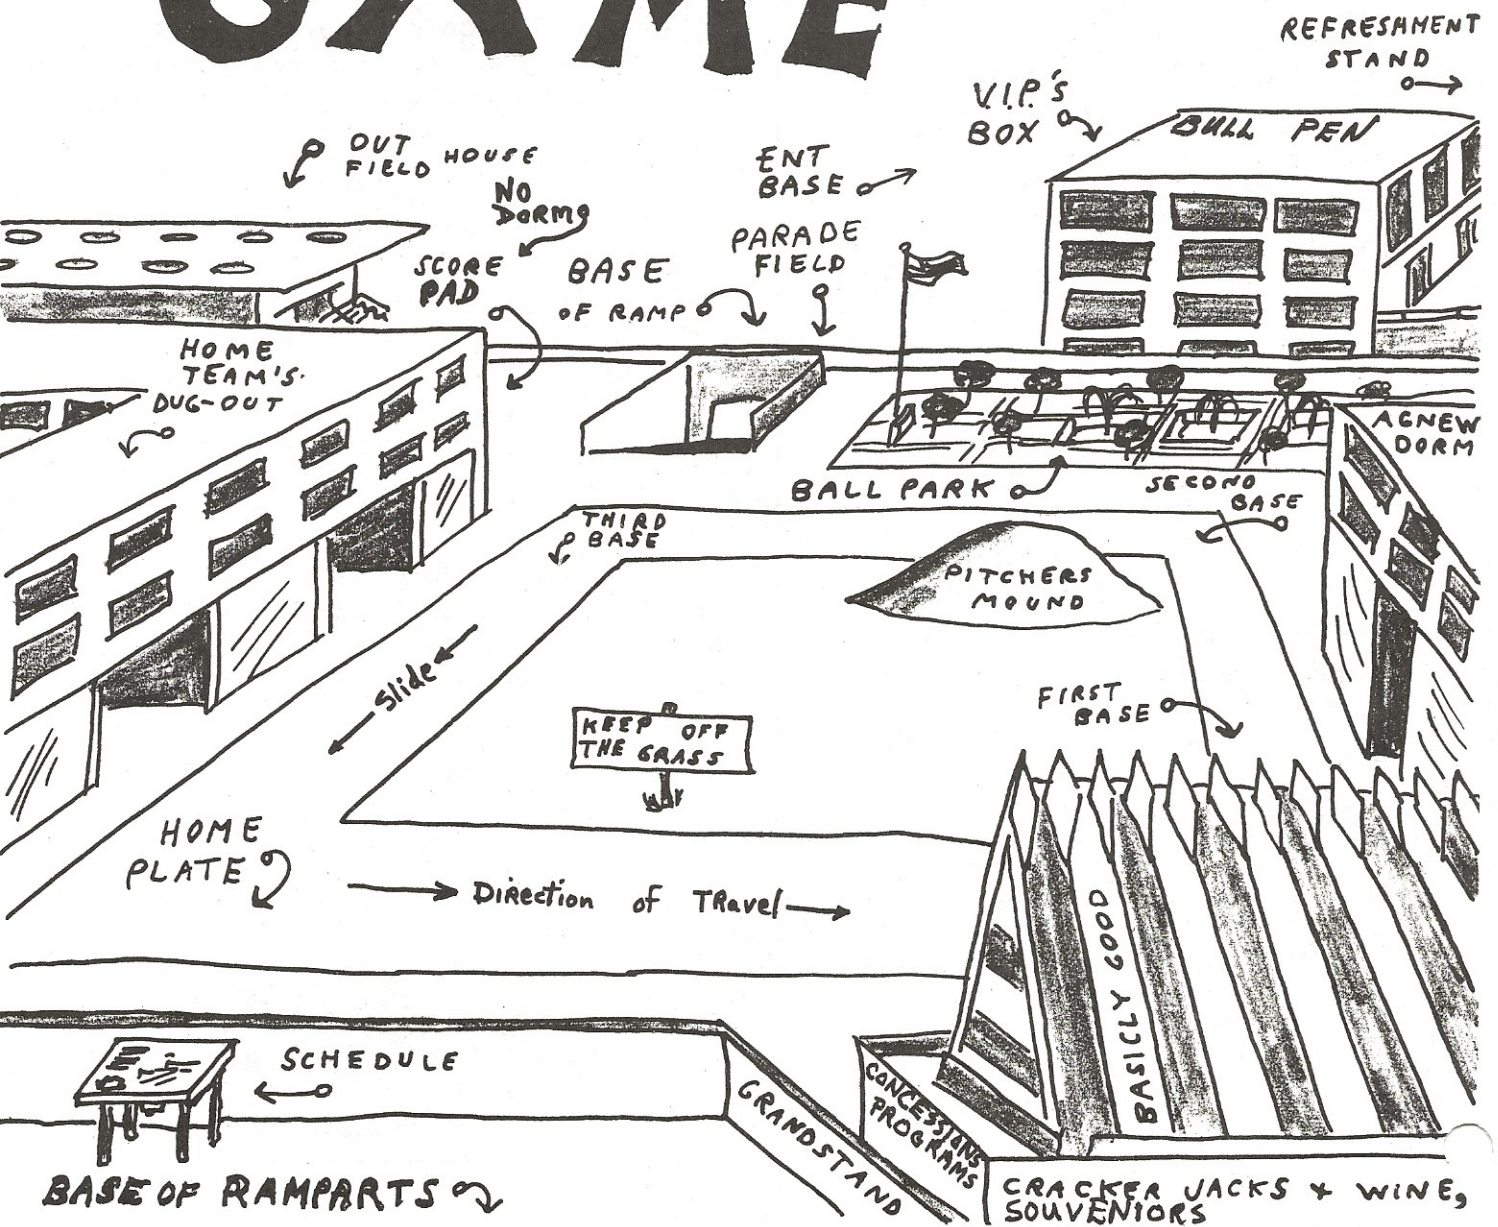 GAME
REFRESHMENT
STAND
V.I.P.'s
BOX
BULL PEN
OUT
FIELD HOUSE
ENT
BASE
NO
DORMS
PARADE
FIELD
SCORE
PAD
BASE
OF RAMP
HOME
TEAM'S
DUG-OUT
AGNEW
DORM
BALL PARK
SECOND
BASE
THIRD
BASE
PITCHERS
MOUND
Slide
FIRST
BASE
KEEP OFF
THE GRASS
HOME
PLATE
Direction of TRavel
BASICLY GOOD
SCHEDULE
GRANDSTAND
CONCESSIONS
PROGRAMS
BASE OF RAMPARTS
CRACKER JACKS & WINE,
SOUVENIORS